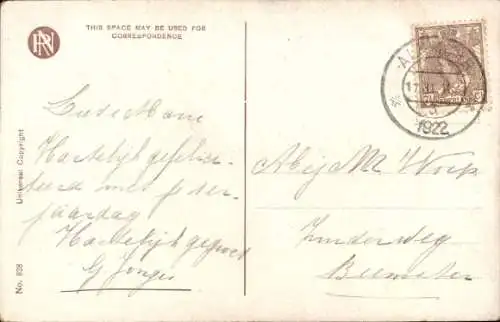 THIS SPACE MAY BE USED FOR
CORRESPONDENCE
Universal Copyright
No. 928
Hartelijk gefelici-
teerd met je ver-
jaardag
Hartelijk gegroet
G Jonges
1922
Abij M Worp
Zuiderweg
Beemster